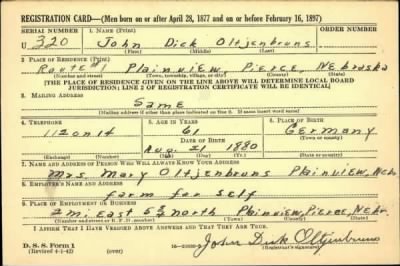 REGISTRATION CARD—(Men born on or after April 28, 1877 and on or before February 16, 1897)
SERIAL NUMBER 1. NAME (Print) ORDER NUMBER
U 320 John Dick Oltjenbruns
(First) (Middle) (Last)
2. PLACE OF RESIDENCE (Print)
Route #1 Plainview, Pierce, Nebraska
(Number and street) (Town, township, village, or city) (County) (State)
[THE PLACE OF RESIDENCE GIVEN ON THE LINE ABOVE WILL DETERMINE LOCAL BOARD
JURISDICTION; LINE 2 OF REGISTRATION CERTIFICATE WILL BE IDENTICAL]
3. MAILING ADDRESS
Same
[Mailing address if other than place indicated on line 2. If same insert word same]
4. TELEPHONE 5. AGE IN YEARS 6. PLACE OF BIRTH
61 Germany
112 on 14 DATE OF BIRTH
Aug. 21 1880
(Exchange) (Number) (Mo.) (Day) (Yr.) (State or country)
7. NAME AND ADDRESS OF PERSON WHO WILL ALWAYS KNOW YOUR ADDRESS
Mrs. Mary Oltjenbruns Plainview, Nebr.
8. EMPLOYER'S NAME AND ADDRESS
farm for self
9. PLACE OF EMPLOYMENT OR BUSINESS
2 mi. east 5 1/2 north Plainview, Pierce, Nebr.
(Number and street or R. F. D. number) (Town) (County) (State)
I AFFIRM THAT I HAVE VERIFIED ABOVE ANSWERS AND THAT THEY ARE TRUE.
D. S. S. Form 1
(Revised 4-1-42) (over) John Dick Oltjenbruns
(Registrant's signature)